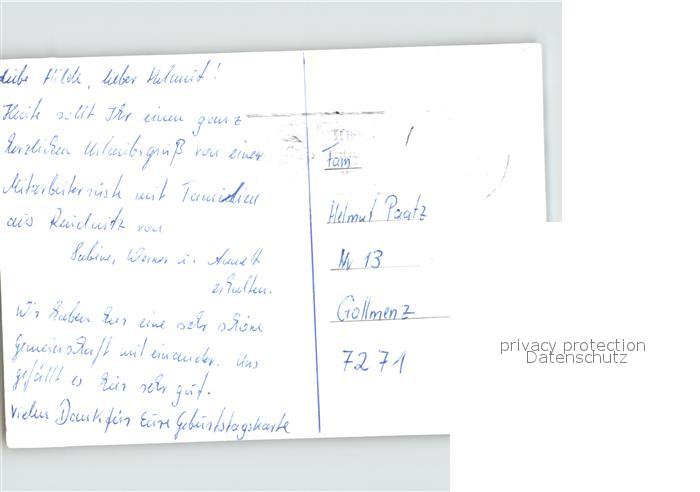 Liebe Hilde, lieber Helmut!
Heute sollt Ihr einen ganz
herzlichen Urlaubsgruß von einer
Mitarbeiterrüste mit Familien
aus Reudnitz von
Sabine, Werner u. Annett
erhalten.
Wir haben hier eine sehr schöne
Gemeinschaft miteinander. Uns
gefällt es hier sehr gut.
Vielen Dank für Eure Geburtstagskarte
Fam.
Helmut Paatz
Nr 13
Gollmenz
7271
privacy protection
Datenschutz